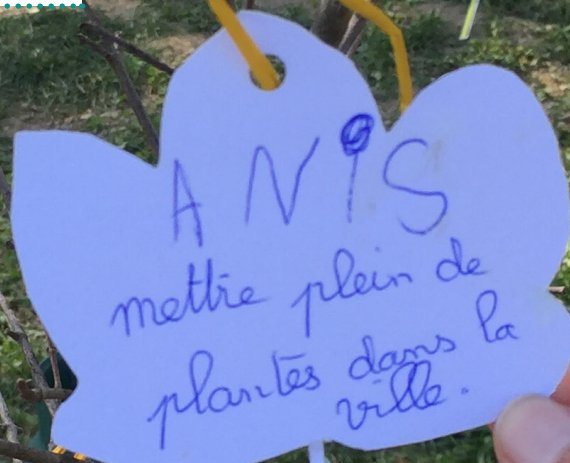 ANiS
mettre plein de
plantes dans la
ville.